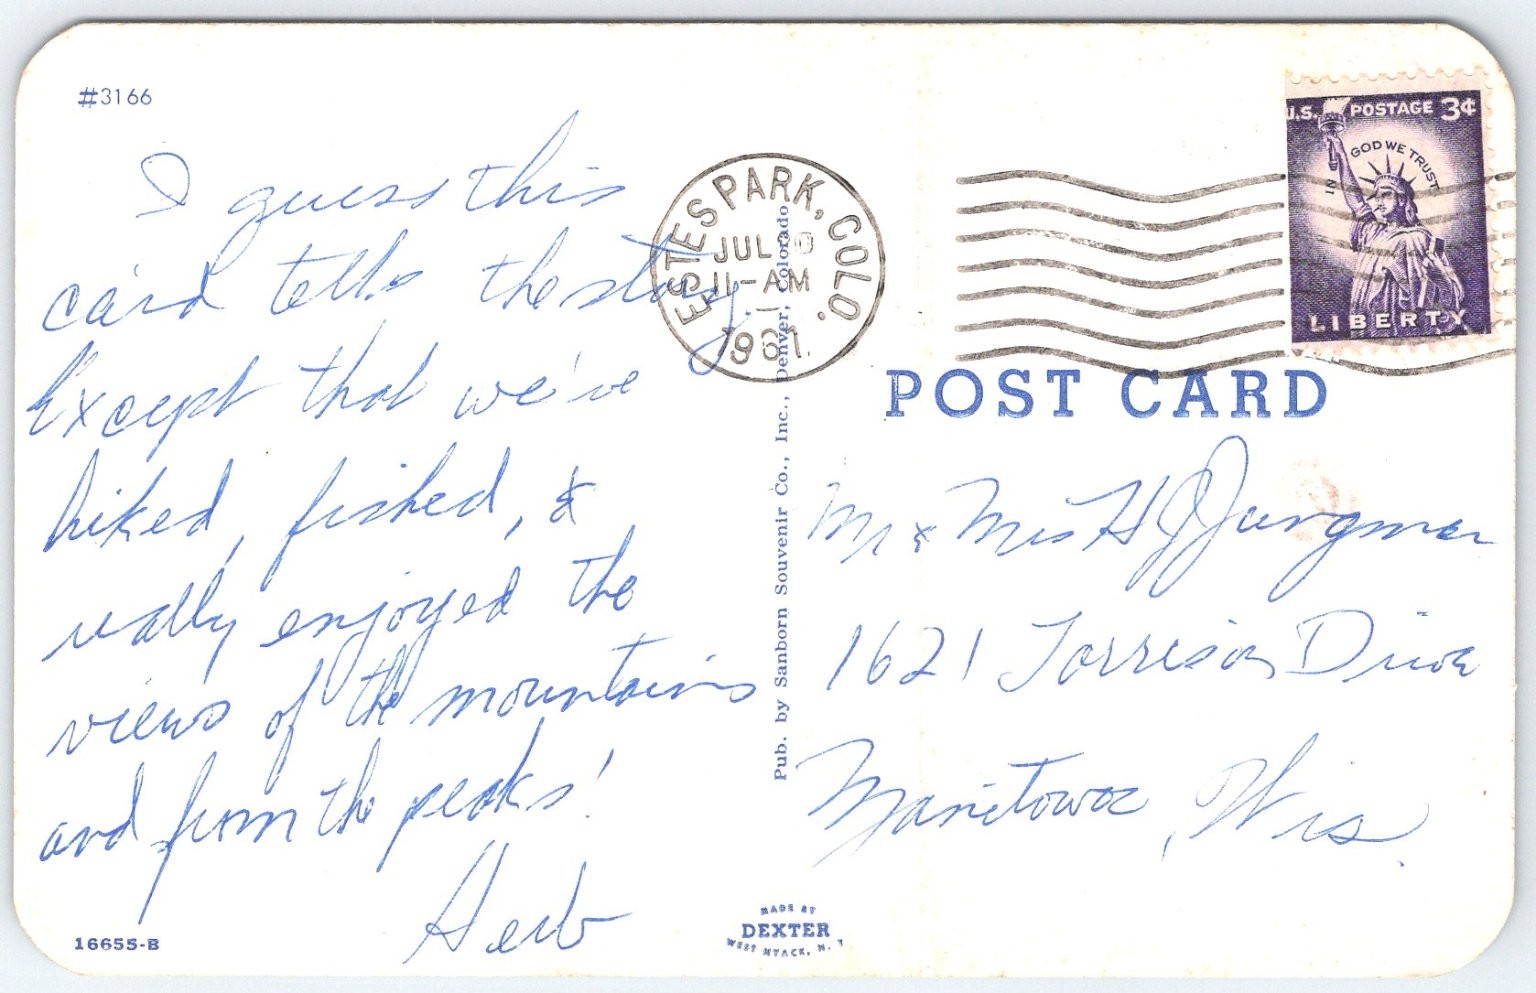 #3166
I guess this
card tells the story.
Except that we've
hiked, fished, &
really enjoyed the
views of the mountains
and from the peaks!
Herb
16655-B
ESTES PARK, COLO.
JUL
11-AM
1961
Pub. by Sanborn Souvenir Co., Inc., Denver, Colorado
MADE BY
DEXTER
WEST NYACK, N. Y.
U.S. POSTAGE 3¢
IN GOD WE TRUST
LIBERTY
POST CARD
Mr & Mrs H J Jungman
1621 Torrison Drive
Manitowoc, Wis.